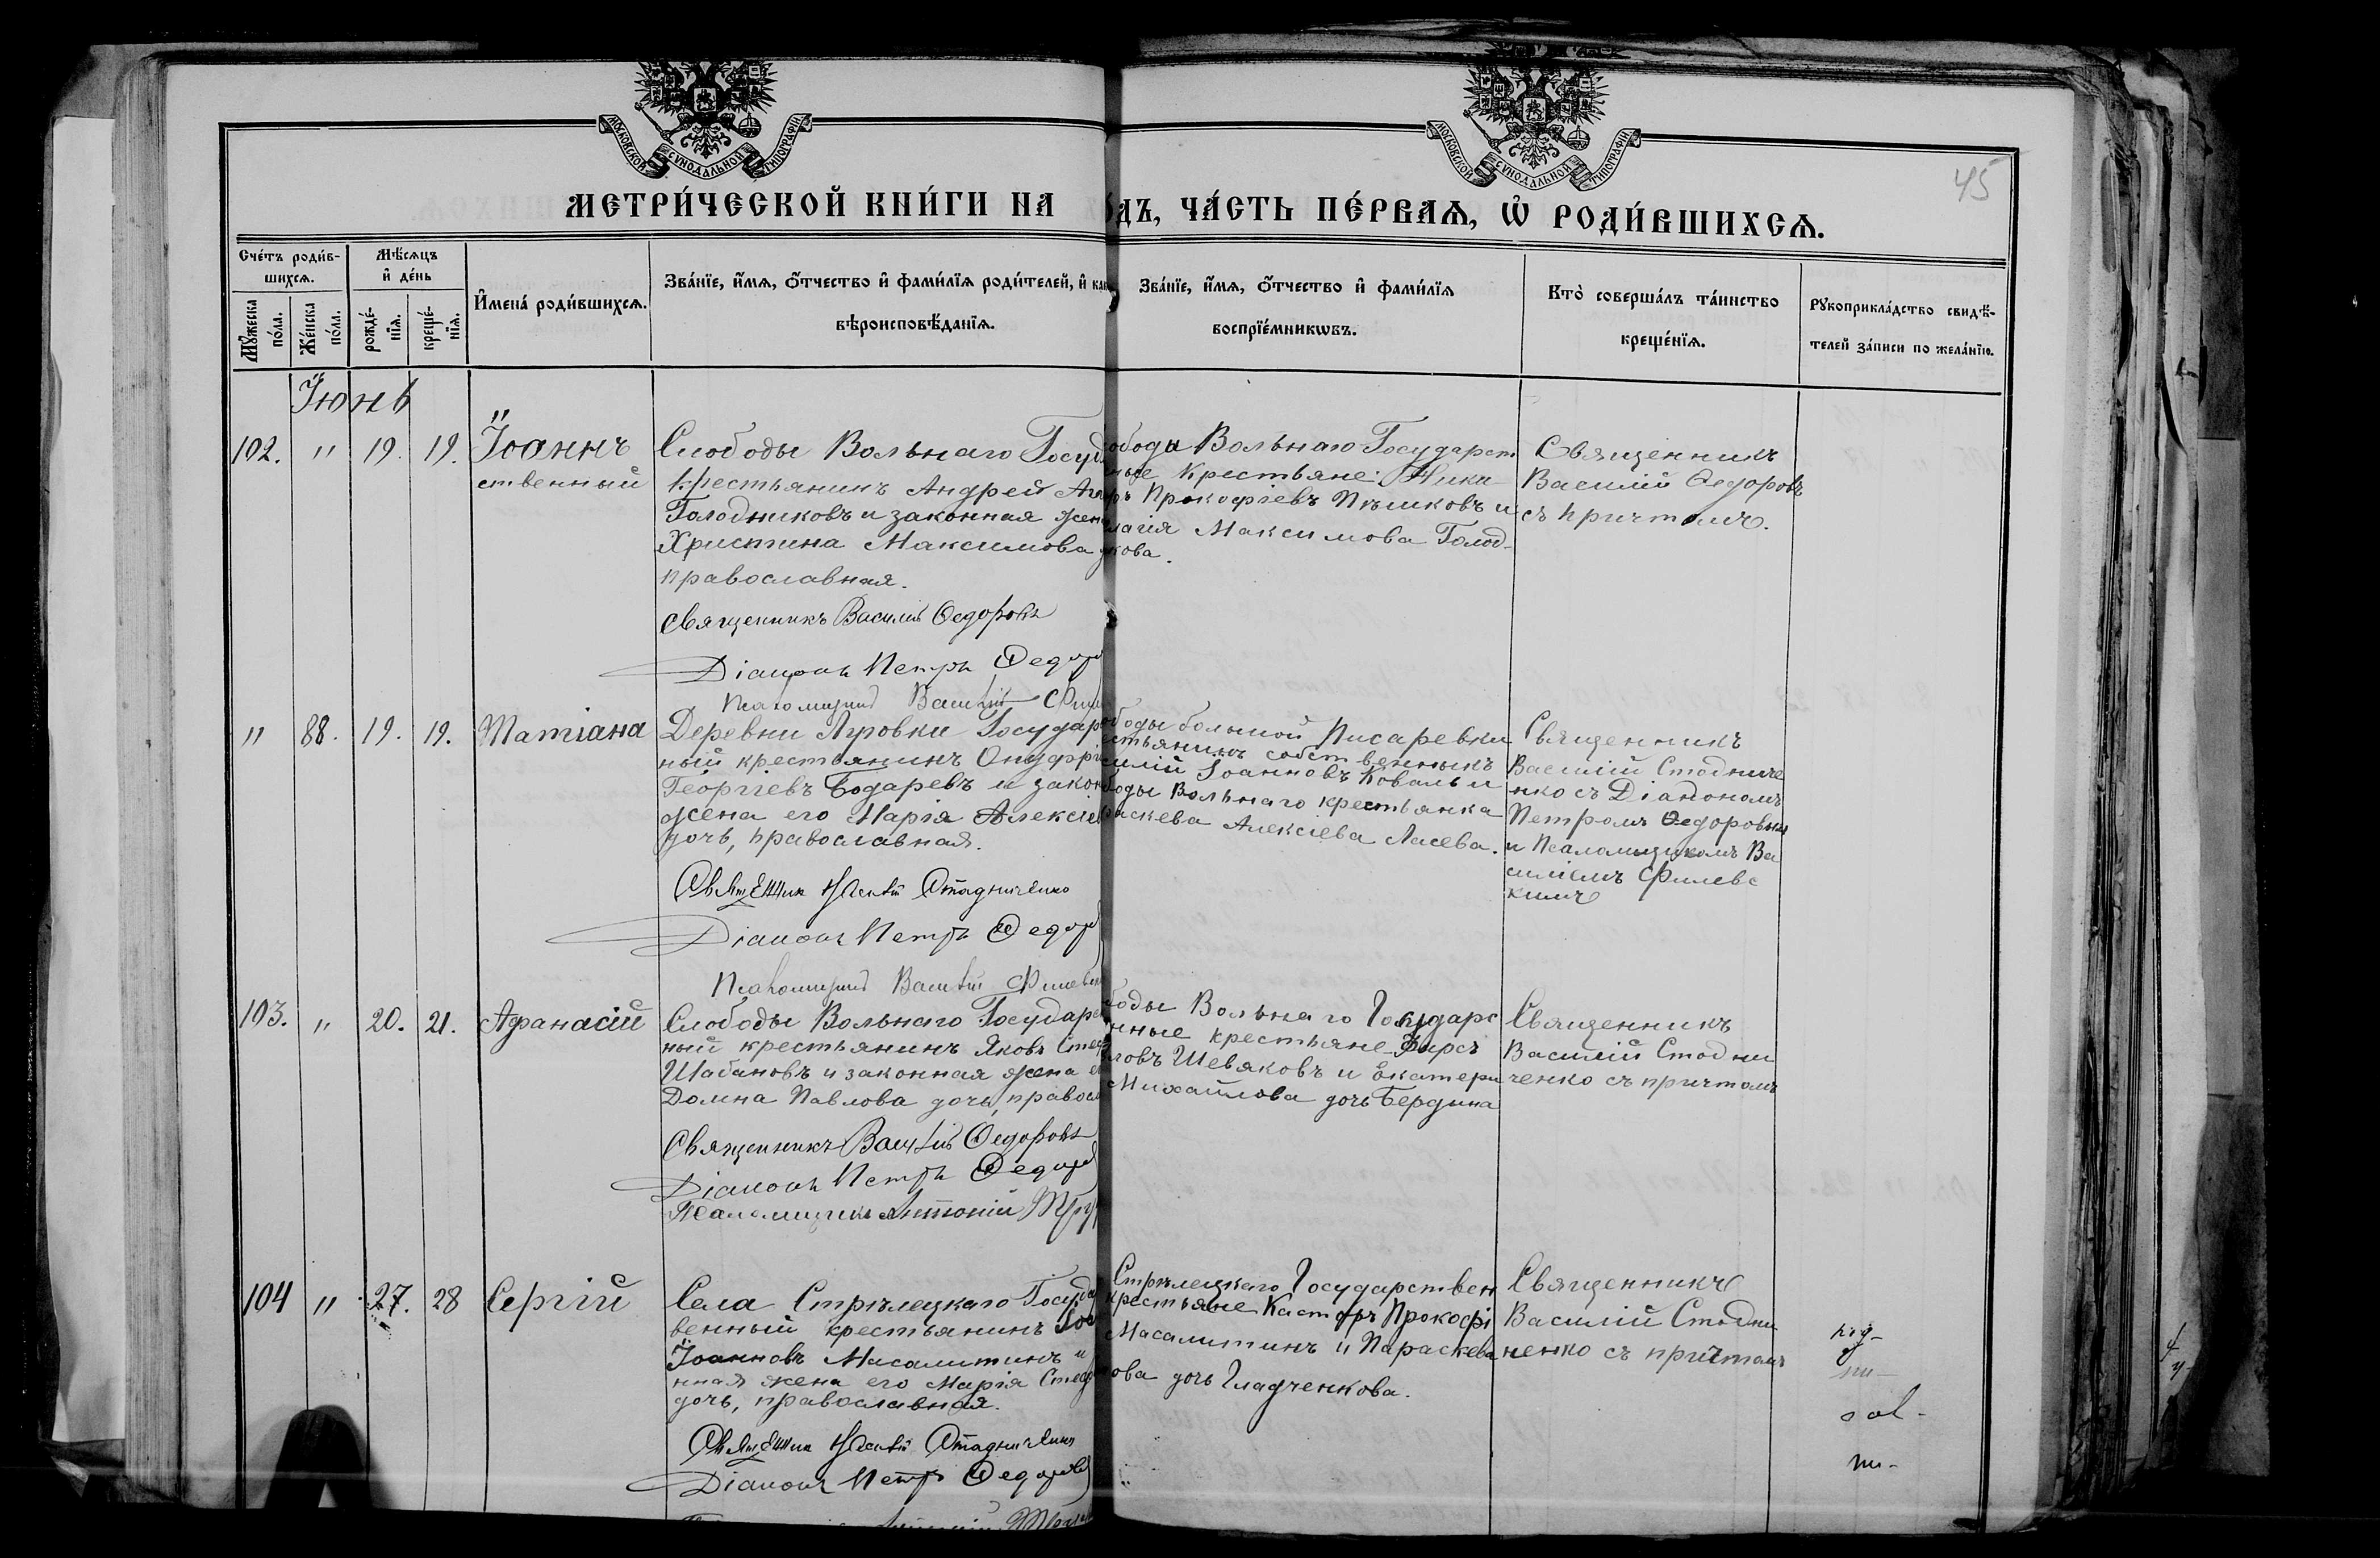 МОСКОВСКОЙ СУНОДАЛЬНОЙ ТИПОГРАФІИ
МОСКОВСКОЙ СУНОДАЛЬНОЙ ТИПОГРАФІИ
45
МЕТРИ́ЧЕСКОЙ КНИ́ГИ НА
ДЪ, ЧА́СТЬ ПЕ́РВАЯ, Ѡ҆ РОДИ́ВШИХСЯ.
Сче́тъ роди́в-
шихся.
Мѣ́сяцъ
и҆ де́нь
Му́жеска
по́ла.
Же́нска
по́ла.
рожде́-
нїя.
креще́-
нїя.
И҆мена́ роди́вшихся.
Зва́нїе, и҆́мя, ѻ҆́тчество и҆ фами́лїя роди́телей, и҆ как
вѣроисповѣ́данїя.
Зва́нїе, и҆́мя, ѻ҆́тчество и҆ фами́лїя
воспрїе́мникѡвъ.
Кто̀ соверша́лъ та́инство
креще́нїя.
Рукоприкла́дство свидѣ́-
телей за́писи по жела́нїю.
Іюнь
102. " 19. 19. Іоаннъ
ственный
Слободы Вольнаго Госуд
крестьянинъ Андрей
Голодниковъ и законная жен
Христина Максимова
православная.
Священникъ Василій Ѳедоровъ
Діаконъ Петръ Ѳедор
Псаломщикъ Василій Фил
ободы Вольнаго Государст
ные крестьяне: Ника-
ръ Прокофіевъ Пѣшковъ и
лагія Максимова Голод-
кова.
Священникъ
Василій Ѳедоровъ
съ причтомъ.
" 88. 19. 19. Татіана
Деревни Яровки Государ
ный крестьянинъ Онуфрі
Георгіевъ Бодаревъ и закон
жена его Марія Алексіев
дочь, православная.
Священник Василій Стадниченко
Діаконъ Петръ Ѳедор
Псаломщикъ Василій Филевс
ободы большой Писаревки
стьянинъ собственникъ
силій Іоанновъ Коваль и
боды Вольнаго крестьянка
раскева Алексіева Лисева.
Священникъ
Василій Стодниче
нко съ Діакономъ
Петромъ Ѳедоровым
и Псаломщикомъ Ва
силіемъ Филевс
кимъ
103. " 20. 21. Аѳанасій
Слободы Вольнаго Государс
ный крестьянинъ Яковъ Стеф
Шабановъ и законная жена е
Домна Павлова дочь, правосл
Священникъ Василій Ѳедоровъ
Діаконъ Петръ Ѳедор
Псаломщикъ Антоній
боды Вольнаго Государс
нные крестьяне Фирсъ
ловъ Шевяковъ и Екатери
Михайлова дочь Бердина
Священникъ
Василій Стодни
ченко съ причтомъ
104 " 27. 28 Сергій
Села Стрѣлецкаго Госуда
венный крестьянинъ
Іоанновъ Масалитинъ и
нная жена его Марія Стеф
дочь, православная.
Священник Василій Стадниченко
Діаконъ Петръ Ѳедоровъ
Стрѣлецкаго Государствен
крестьяне Касторъ Прокофі
Масалитинъ и Параскева
ова дочь Гладченкова.
Священникъ
Василій Стодни
ченко съ причтомъ